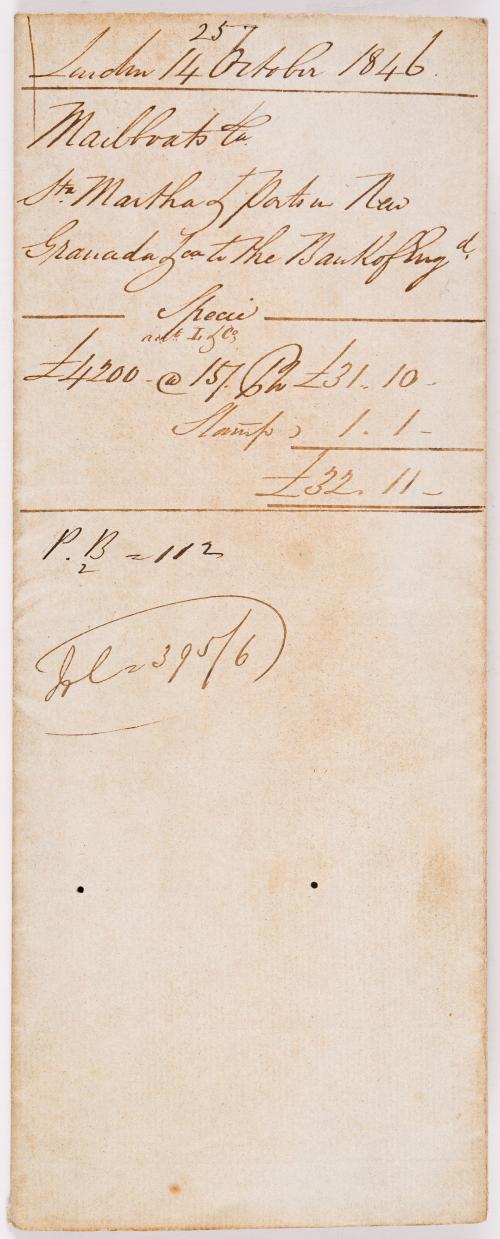 257
London 14 October 1846.
Mailboats &a.
Sta. Martha & Ports in New
Granada &ca to the Bank of Engd.
Specie
acct I. & Co
£4200 @ 15/. P% £31. 10 -
Stamp 1. 1 -
£32. 11 -
P. B 2 = 112
Jol = 395/6